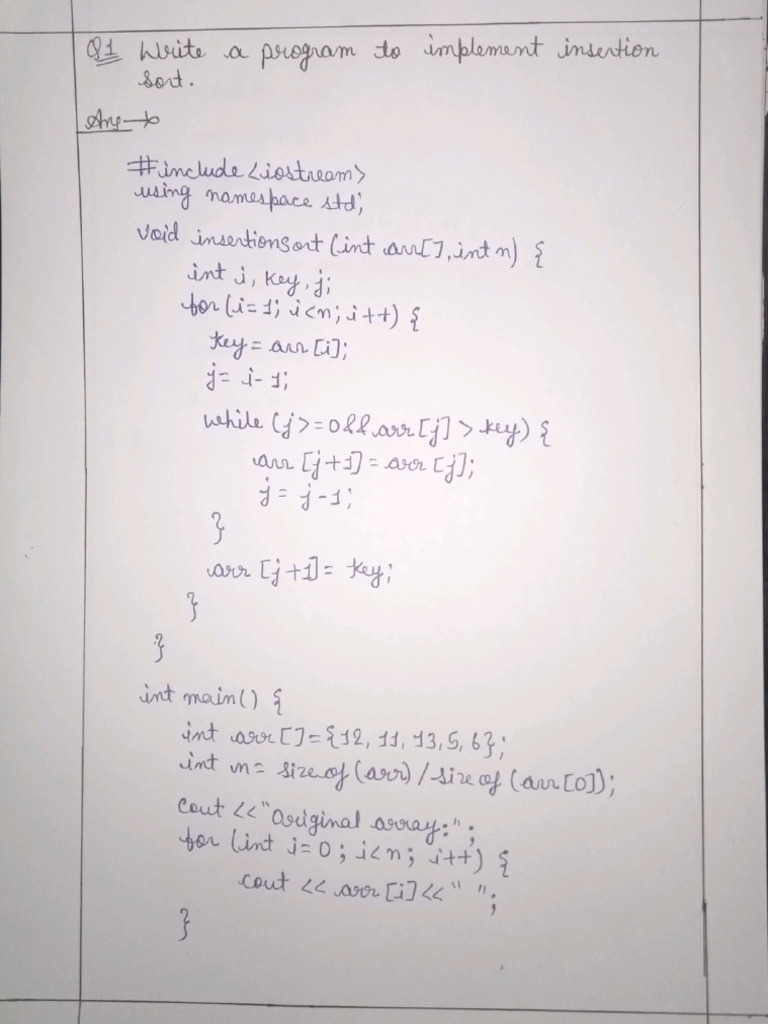 Q1 Write a program to implement insertion
sort.
Ans→
#include <iostream>
using namespace std;
void insertionsort (int arr[], int n) {
int i, key, j;
for (i=1; i<n; i++) {
key = arr [i];
j= i-1;
while (j>=0 && arr[j] > key) {
arr [j+1] = arr [j];
j = j-1;
}
arr [j+1]= key;
}
}
int main() {
int arr []={12, 11, 13, 5, 6};
int n= sizeof (arr) / sizeof (arr[0]);
cout <<"Original array:";
for (int i=0; i<n; i++) {
cout << arr [i] << " ";
}